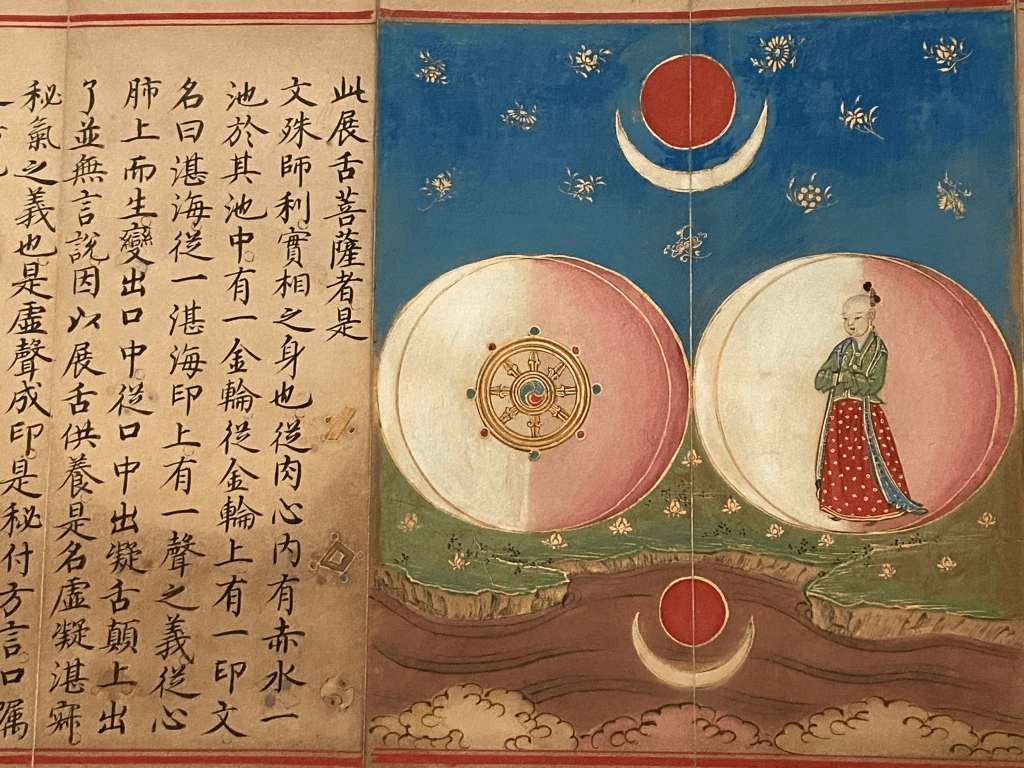 此展舌菩薩者是
文殊師利實相之身也從肉心内有赤水一
池於其池中有一金輪從金輪上有一印文
名曰湛海從一湛海印上有一聲之義從心
肺上而生變出口中從口中出凝舌顛上出
了並無言說因以展舌供養是名虛凝湛寂
秘氣之義也是虛聲成印是秘付方言口嘱